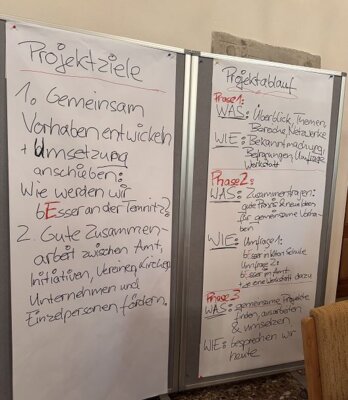 Projektziele
1. Gemeinsam
Vorhaben entwickeln
+ Umsetzung
anschieben:
Wie werden wir
bEsser an der Temnitz?
2. Gute Zusammen-
arbeit zwischen Amt,
Initiativen, Vereinen, Kirchen,
Unternehmen und
Einzelpersonen fördern.
Projektablauf
Phase 1:
WAS: Überblick, Themen,
Bereiche, Netzwerke
WIE: Bekanntmachung,
Befragungen, Umfrage
Werkstatt
Phase 2:
WAS: Zusammentragen:
gute Praxis & neue Ideen
für gemeinsame Vorha-
ben
WIE: Umfrage 1:
bEsser in Kita & Schule
Umfrage 2:
bEsser im Amt
+ je eine Werkstatt dazu
Phase 3
WAS: gemeinsame Projekte
finden, ausarbeiten
& umsetzen
WIE: besprechen wir
heute